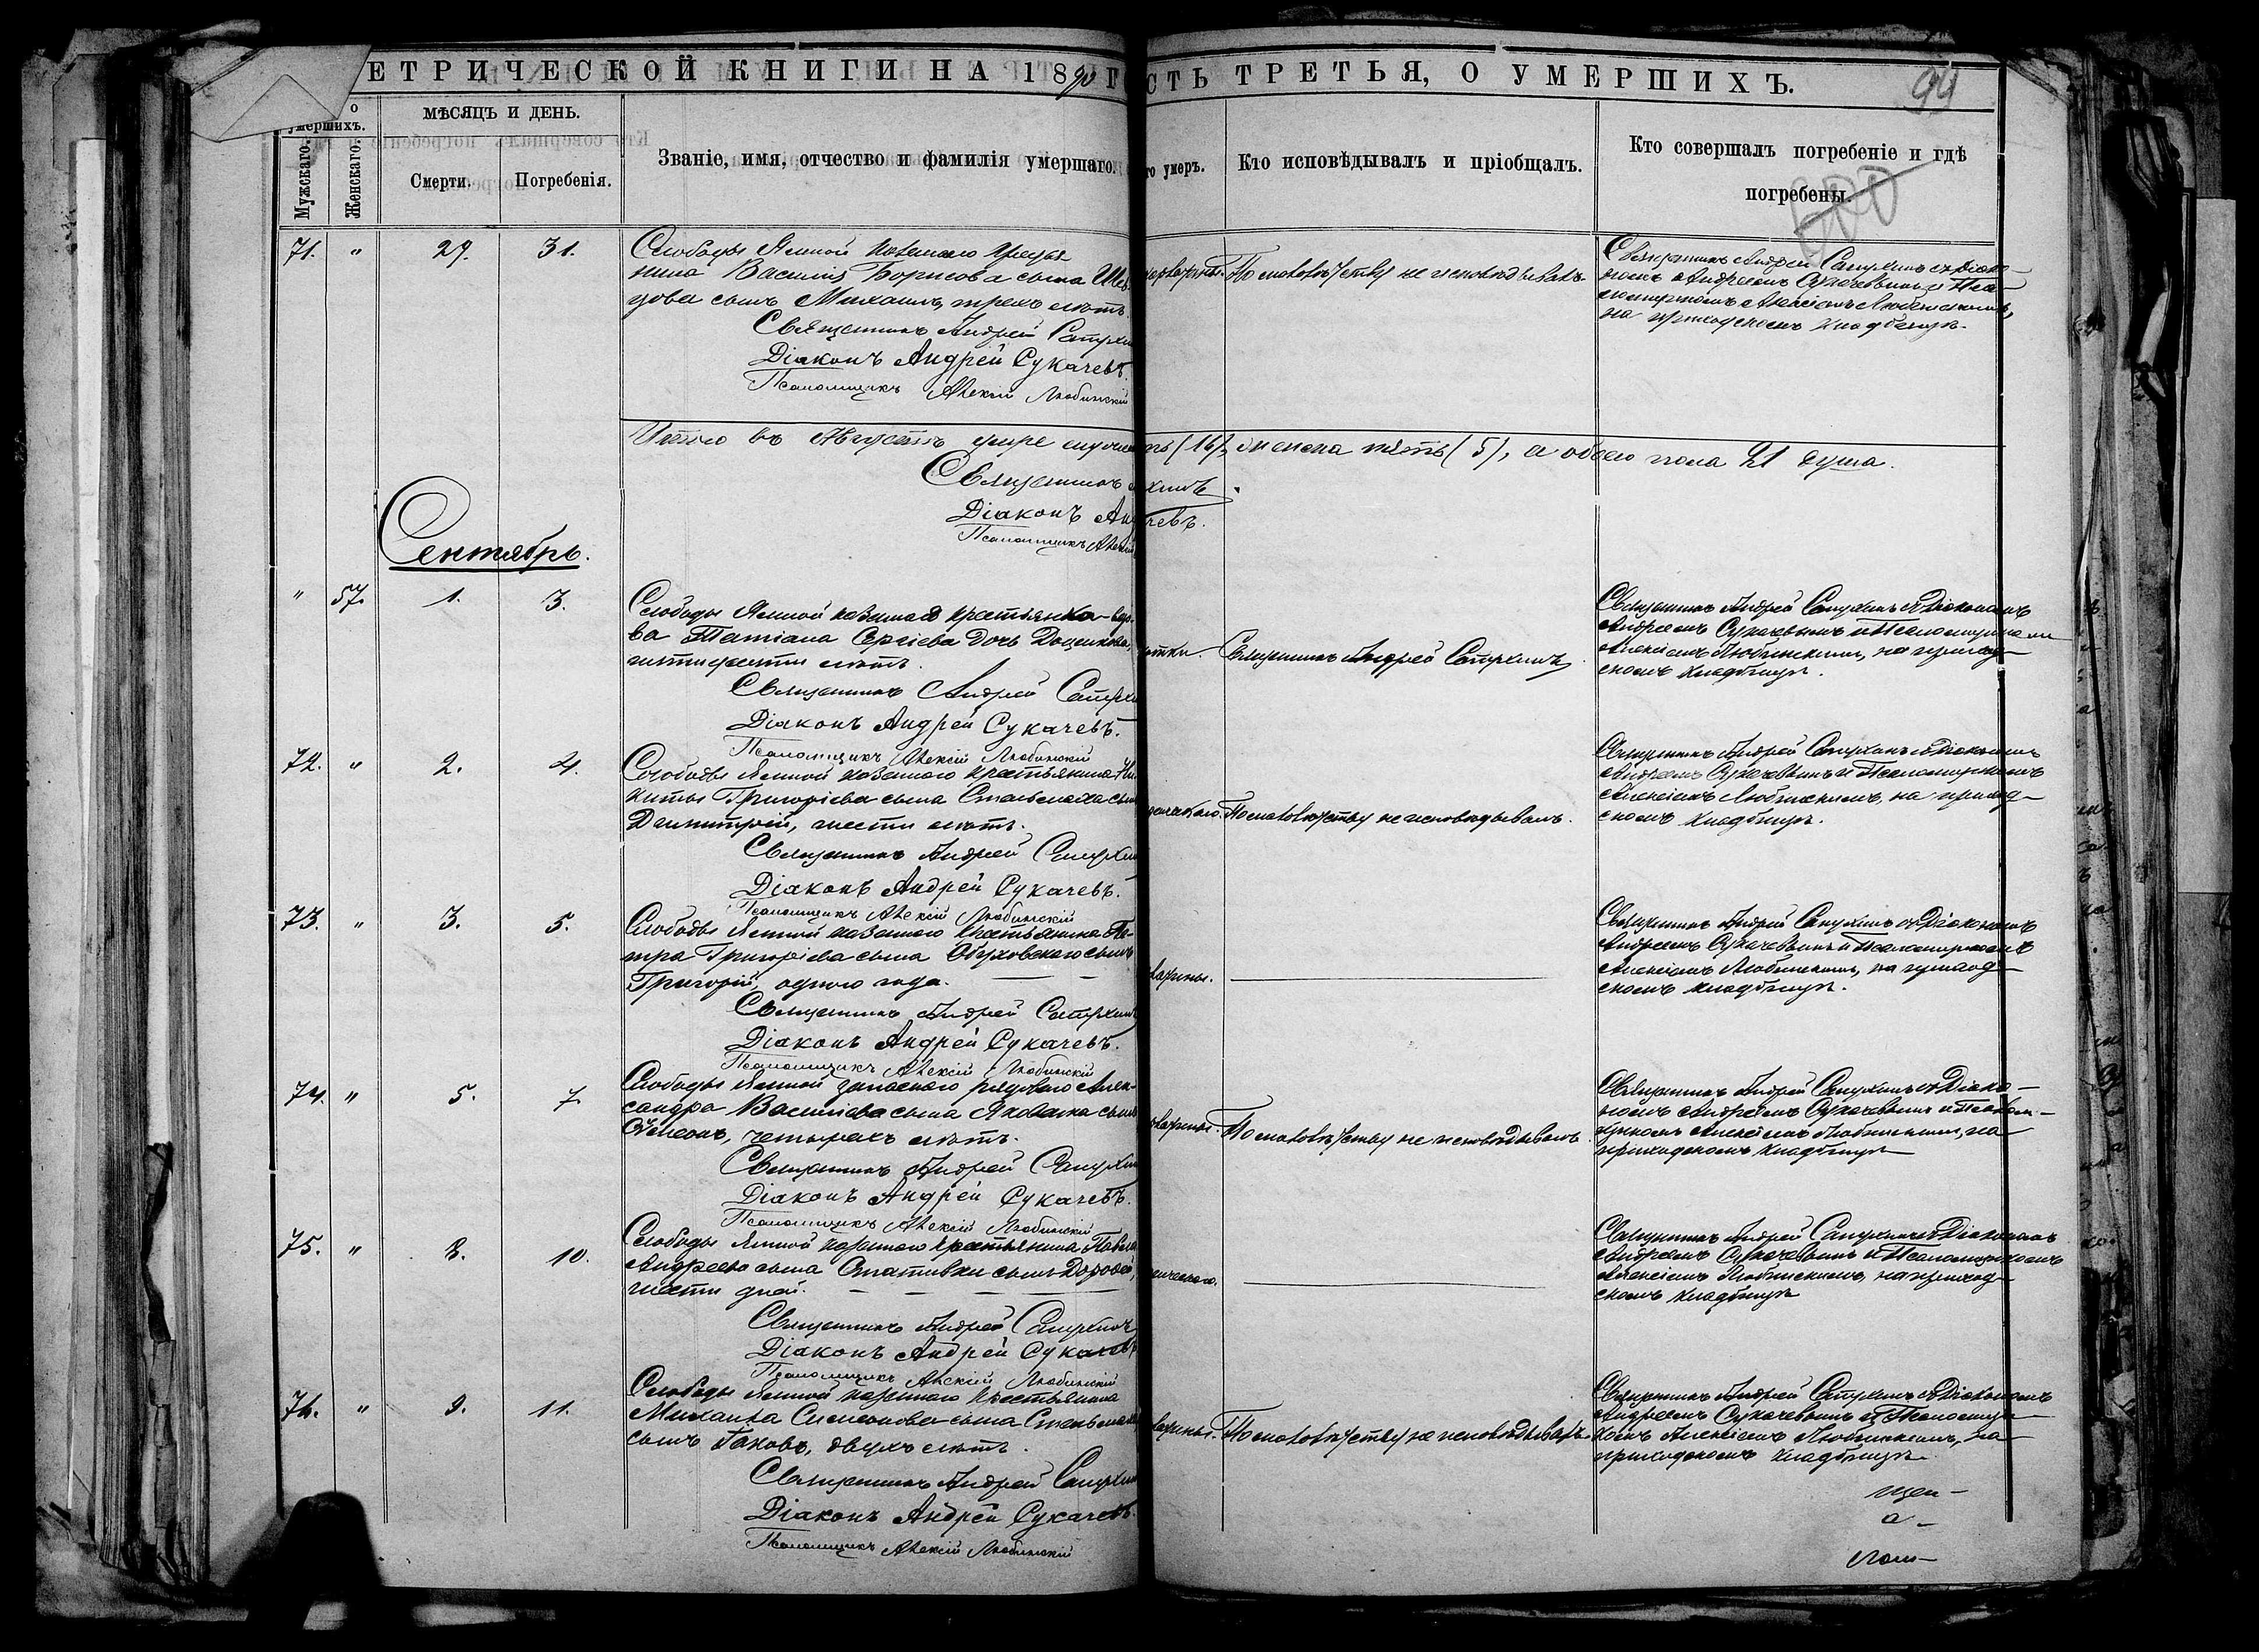 ЕТРИЧЕСКОЙ КНИГИ НА 1890 Г
СТЬ ТРЕТЬЯ, О УМЕРШИХЪ.
94
умершихъ.
Мужскаго.
Женскаго.
МѢСЯЦЪ И ДЕНЬ.
Смерти.
Погребенія.
Званіе, имя, отчество и фамилія умершаго.
го умеръ.
Кто исповѣдывалъ и пріобщалъ.
Кто совершалъ погребеніе и гдѣ
погребены.
71. " 29. 31.
Слободы Ямной казеннаго Кресья
нина Василія Борисова сына Шев
цова сынъ Михаилъ, трехъ лѣтъ
Священникъ Андрей Сапухин
Діаконъ Андрей Сукачевъ.
Псаломщикъ Алексій Любинскій
По малолѣтству не исповѣдыванъ.
Священникъ Андрей Сапухинъ съ Діако-
номъ Андреемъ Сукачевымъ и Пса-
ломщикомъ Алексіемъ Любинскимъ,
на приходскомъ кладбищѣ.
Итого въ Августѣ умре мужеска
ть (16), женска пять (5), а обоего пола 21 душа.
Священникъ
хинъ
Діаконъ Анд
чевъ.
Псаломщикъ Алексій
Сентябрь.
" 57. 1. 3.
Слободы Ямной казенная крестьянка вдо-
ва Татіана Сергіева дочь Доценкова,
пятидесяти лѣтъ.
Священникъ Андрей Сапухи
Діаконъ Андрей Сукачевъ.
Псаломщикъ Алексій Любинскій
Священникъ Андрей Сапухинъ.
Священникъ Андрей Сапухинъ съ Діакономъ
Андреемъ Сукачевымъ и Псаломщикомъ
Алексіемъ Любинскимъ, на приход-
скомъ кладбищѣ.
72. " 2. 4.
Слободы Ямной казеннаго крестьянина Ни
киты Григоріева сына Стальмаха сынъ
Димитрій, шести лѣтъ.
Священникъ Андрей Сапухин
Діаконъ Андрей Сукачевъ.
Псаломщикъ Алексій Любинскій
По малолѣтству не исповѣдыванъ.
Священникъ Андрей Сапухинъ съ Діакономъ
Андреемъ Сукачевымъ и Псаломщикомъ
Алексіемъ Любинскимъ, на приход-
скомъ кладбищѣ.
73. " 3. 5.
Слободы Ямной казеннаго крестьянина Пе-
тра Григоріева сына Обуховскаго сынъ
Григорій, одного года.
Священникъ Андрей Сапухин
Діаконъ Андрей Сукачевъ.
Псаломщикъ Алексій Любинскій
Священникъ Андрей Сапухинъ съ Діакономъ
Андреемъ Сукачевымъ и Псаломщикомъ
Алексіемъ Любинскимъ, на приход-
скомъ кладбищѣ.
74. " 5. 7.
Слободы Ямной запаснаго рядоваго Алек-
сандра Василіева сына Яковлева сынъ
Симеонъ, четырехъ лѣтъ.
Священникъ Андрей Сапухин
Діаконъ Андрей Сукачевъ.
Псаломщикъ Алексій Любинскій
По малолѣтству не исповѣдыванъ.
Священникъ Андрей Сапухинъ съ Діако-
номъ Андреемъ Сукачевымъ и Псалом-
щикомъ Алексіемъ Любинскимъ, на
приходскомъ кладбищѣ
75. " 8. 10.
Слободы Ямной казеннаго крестьянина Павла
Андреева сына Стативки сынъ Дорофей,
шести дней.
Священникъ Андрей Сапухинъ
Діаконъ Андрей Сукачевъ
Псаломщикъ Алексій Любинскій
Священникъ Андрей Сапухинъ съ Діакономъ
Андреемъ Сукачевымъ и Псаломщикомъ
Алексіемъ Любинскимъ, на приход-
скомъ кладбищѣ
76. " 9. 11.
Слободы Ямной казеннаго крестьянина
Михаила Симеонова сына Стальмаха
сынъ Іаковъ, двухъ лѣтъ.
Священникъ Андрей Сапухин
Діаконъ Андрей Сукачевъ.
Псаломщикъ Алексій Любинскій
По малолѣтству не исповѣдыванъ.
Священникъ Андрей Сапухинъ съ Діакономъ
Андреемъ Сукачевымъ и Псаломщи-
комъ Алексіемъ Любинскимъ, на
приходскомъ кладбищѣ.